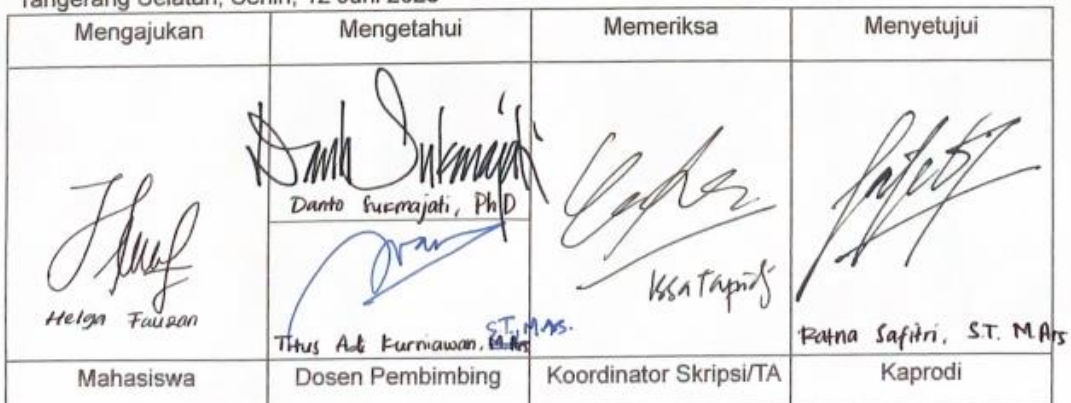 Tangerang Selatan, Senin, 12 Juni 2023
Mengajukan Mengetahui Memeriksa Menyetujui
Danto Sukmajati
Danto Sukmajati, Ph D
Helga Fauzan
Titus Adi Kurniawan, S.T., M.Ars.
Issa
Ratna Safitri, S.T. M Ars
Mahasiswa Dosen Pembimbing Koordinator Skripsi/TA Kaprodi